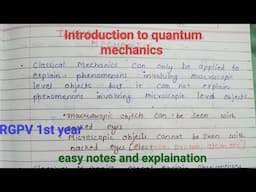 Introduction to quantum
mechanics
Classical Mechanics can only be applied to
explain phenomenons involving macroscopic
level objects but it can not explain
phenomenons involving Microscopic level objects
Macroscopic objects can be seen with
RGPV 1st year
nacked eyes
Microscopic objects cannot be seen with
nacked eyes
easy notes and explaination